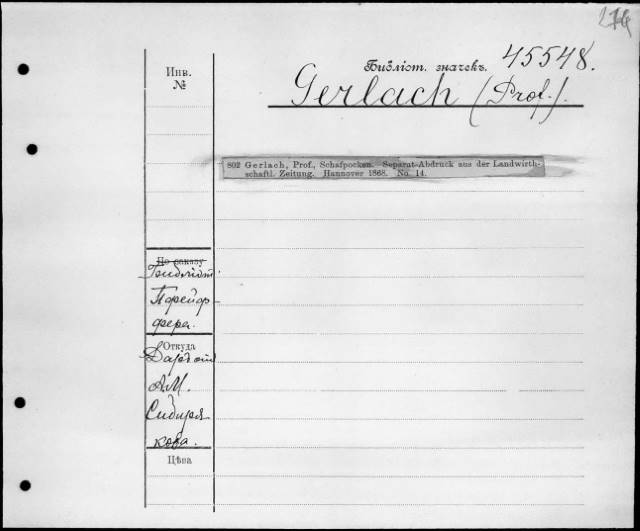 274
Инв.
№
Библіот. значекъ. 45548.
Gerlach (Prof.).
802 Gerlach, Prof., Schafpocken. Separat-Abdruck aus der Landwirth-
schaftl. Zeitung. Hannover 1868. No. 14.
По заказу
Библіот.
Пфейф-
фера.
Откуда
Даръ
А.М.
Сибиря
кова.
Цѣна